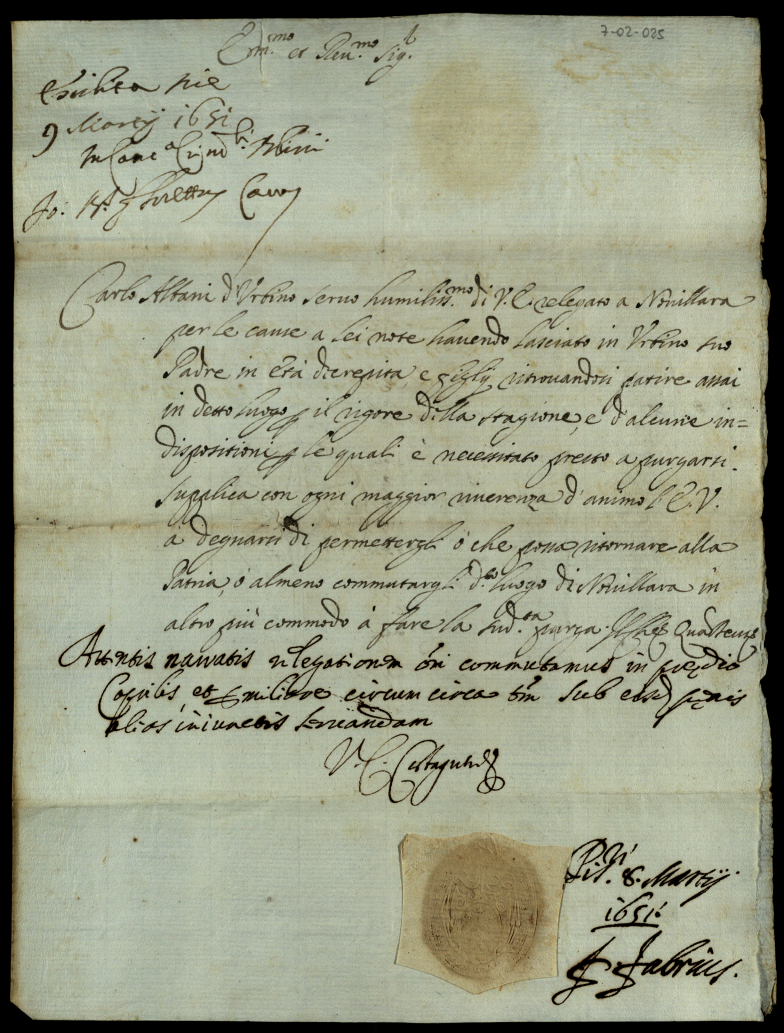 7-02-025
Em.mo et Reu.mo Sig.r
Exhibita die
9 Martij 1651
in Canc.a Urbini
Jo:
Carlo Albani d'Urbino seruo humiliss.mo di V. E. relegato a Nouillara
per le cause a lei note hauendo lasciato in Urbino suo
Padre in età decrepita, e figlij, ritrouandosi patire assai
in detto luogo p il rigore della stagione, e d'alcune in=
dispositioni p le quali è necessitato presto a purgarsi.
Supplica con ogni maggior riuerenza d'animo l'E. V.
a degnarsi di permettergli ò che possa ritornare alla
Patria, ò almeno commutargli d.o luogo di Nouillara in
altro più commodo à fare la sud.ta purga.
Attentis narratis relegationem commutamus in predio
et p miliare circum circa sub eisd penis
alias iniunctis seruandam
V. C.
Pis.ri 8. Martij
1651.
Fabrius.